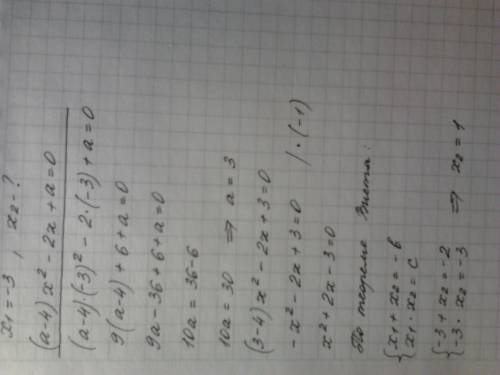 x₁ = -3 , x₂ - ?
(a-4) x² - 2x + a = 0
(a-4)·(-3)² - 2·(-3) + a = 0
9(a-4) + 6 + a = 0
9a - 36 + 6 + a = 0
10a = 36 - 6
10a = 30 ⇒ a = 3
(3-4) x² - 2x + 3 = 0
-x² - 2x + 3 = 0 / · (-1)
x² + 2x - 3 = 0
По теореме Виета:
{ x₁ + x₂ = -b
{ x₁ · x₂ = c
{ -3 + x₂ = -2
{ -3 · x₂ = -3 ⇒ x₂ = 1